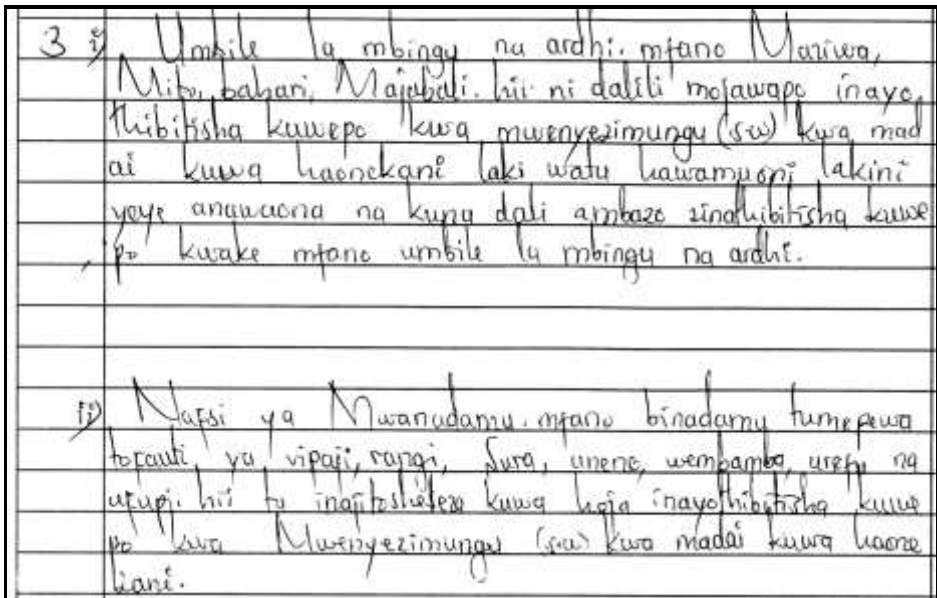 3 i) Umbile la mbingu na ardhi. mfano Maziwa,
Mito, bahari, Majabali. hii ni dalili mojawapo inayo,
thibitisha kuwepo kwa mwenyezimungu (s.w) kwa mad
ai kuwa haonekani laki watu hawamuoni lakini
yeye anawaona na kuna dali ambazo zinathibitisha kuwe
po kwake mfano umbile la mbingu na ardhi.
ii) Nafsi ya Mwanadamu. mfano binadamu tumepewa
tofauti, ya vipaji, rangi, Sura, unene, wembamba, urefu na
ufupi. hii tu inajitosheleza kuwa hoja inayothibitisha kuwe
po kwa Mwenyezimungu (s.w) kwa madai kuwa haone
kani.